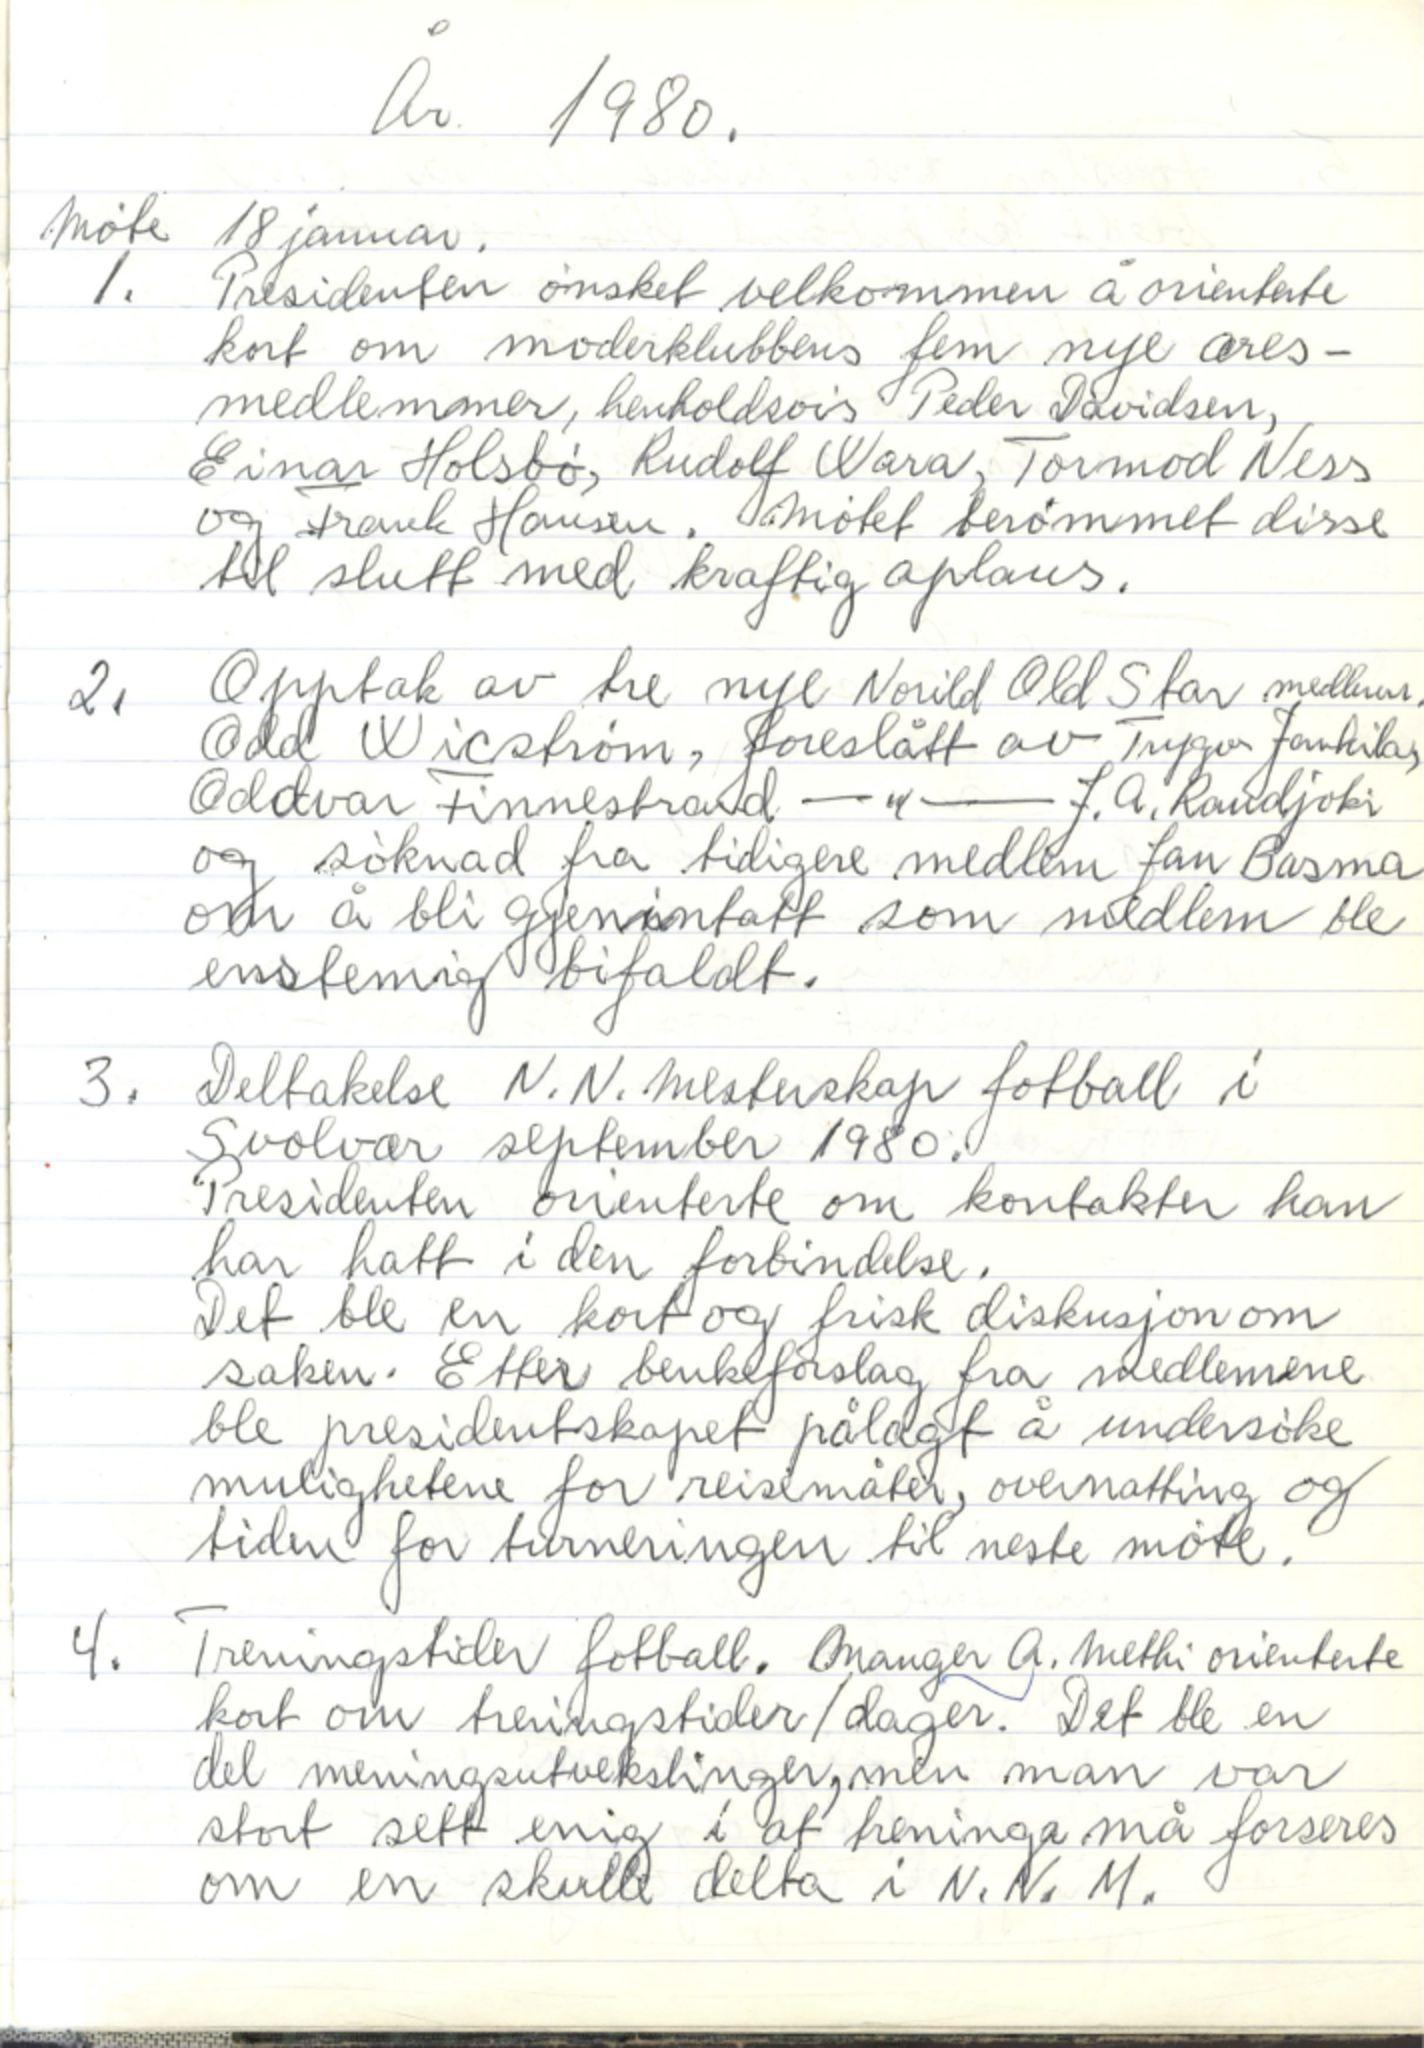 År 1980.
Møte 18 januar.
1. Presidenten ønsket velkommen å orienterte
kort om moderklubbens fem nye æres-
medlemmer, henholdsvis Peder Davidsen,
Einar Holsbø, Rudolf Wara, Tormod Ness
og Frank Hansen. Møtet berømmet disse
til slutt med kraftig aplaus.
2. Opptak av tre nye Norild Old Star medlem.
Odd Wicstrøm, foreslått av Trygve
Oddvar Finnestrand —"— J. A. Raudjoki
og søknad fra tidigere medlem Jan Basma
om å bli gjeninntatt som medlem ble
enstemig bifaldt.
3. Deltakelse N.N. Mesterskap fotball i
Svolvær september 1980.
Presidenten orienterte om kontakter han
har hatt i den forbindelse.
Det ble en kort og frisk diskusjon om
saken. Etter benkeforslag fra medlemene
ble presidentskapet pålagt å undersøke
mulighetene for reisemåter, overnatting og
tiden for turneringen til neste møte.
4. Treningstider fotball. Manger A. Methi orienterte
kort om treningstider/dager. Det ble en
del meningsutvekslinger, men man var
stort sett enig i at treninga må forseres
om en skulle delta i N.N.M.